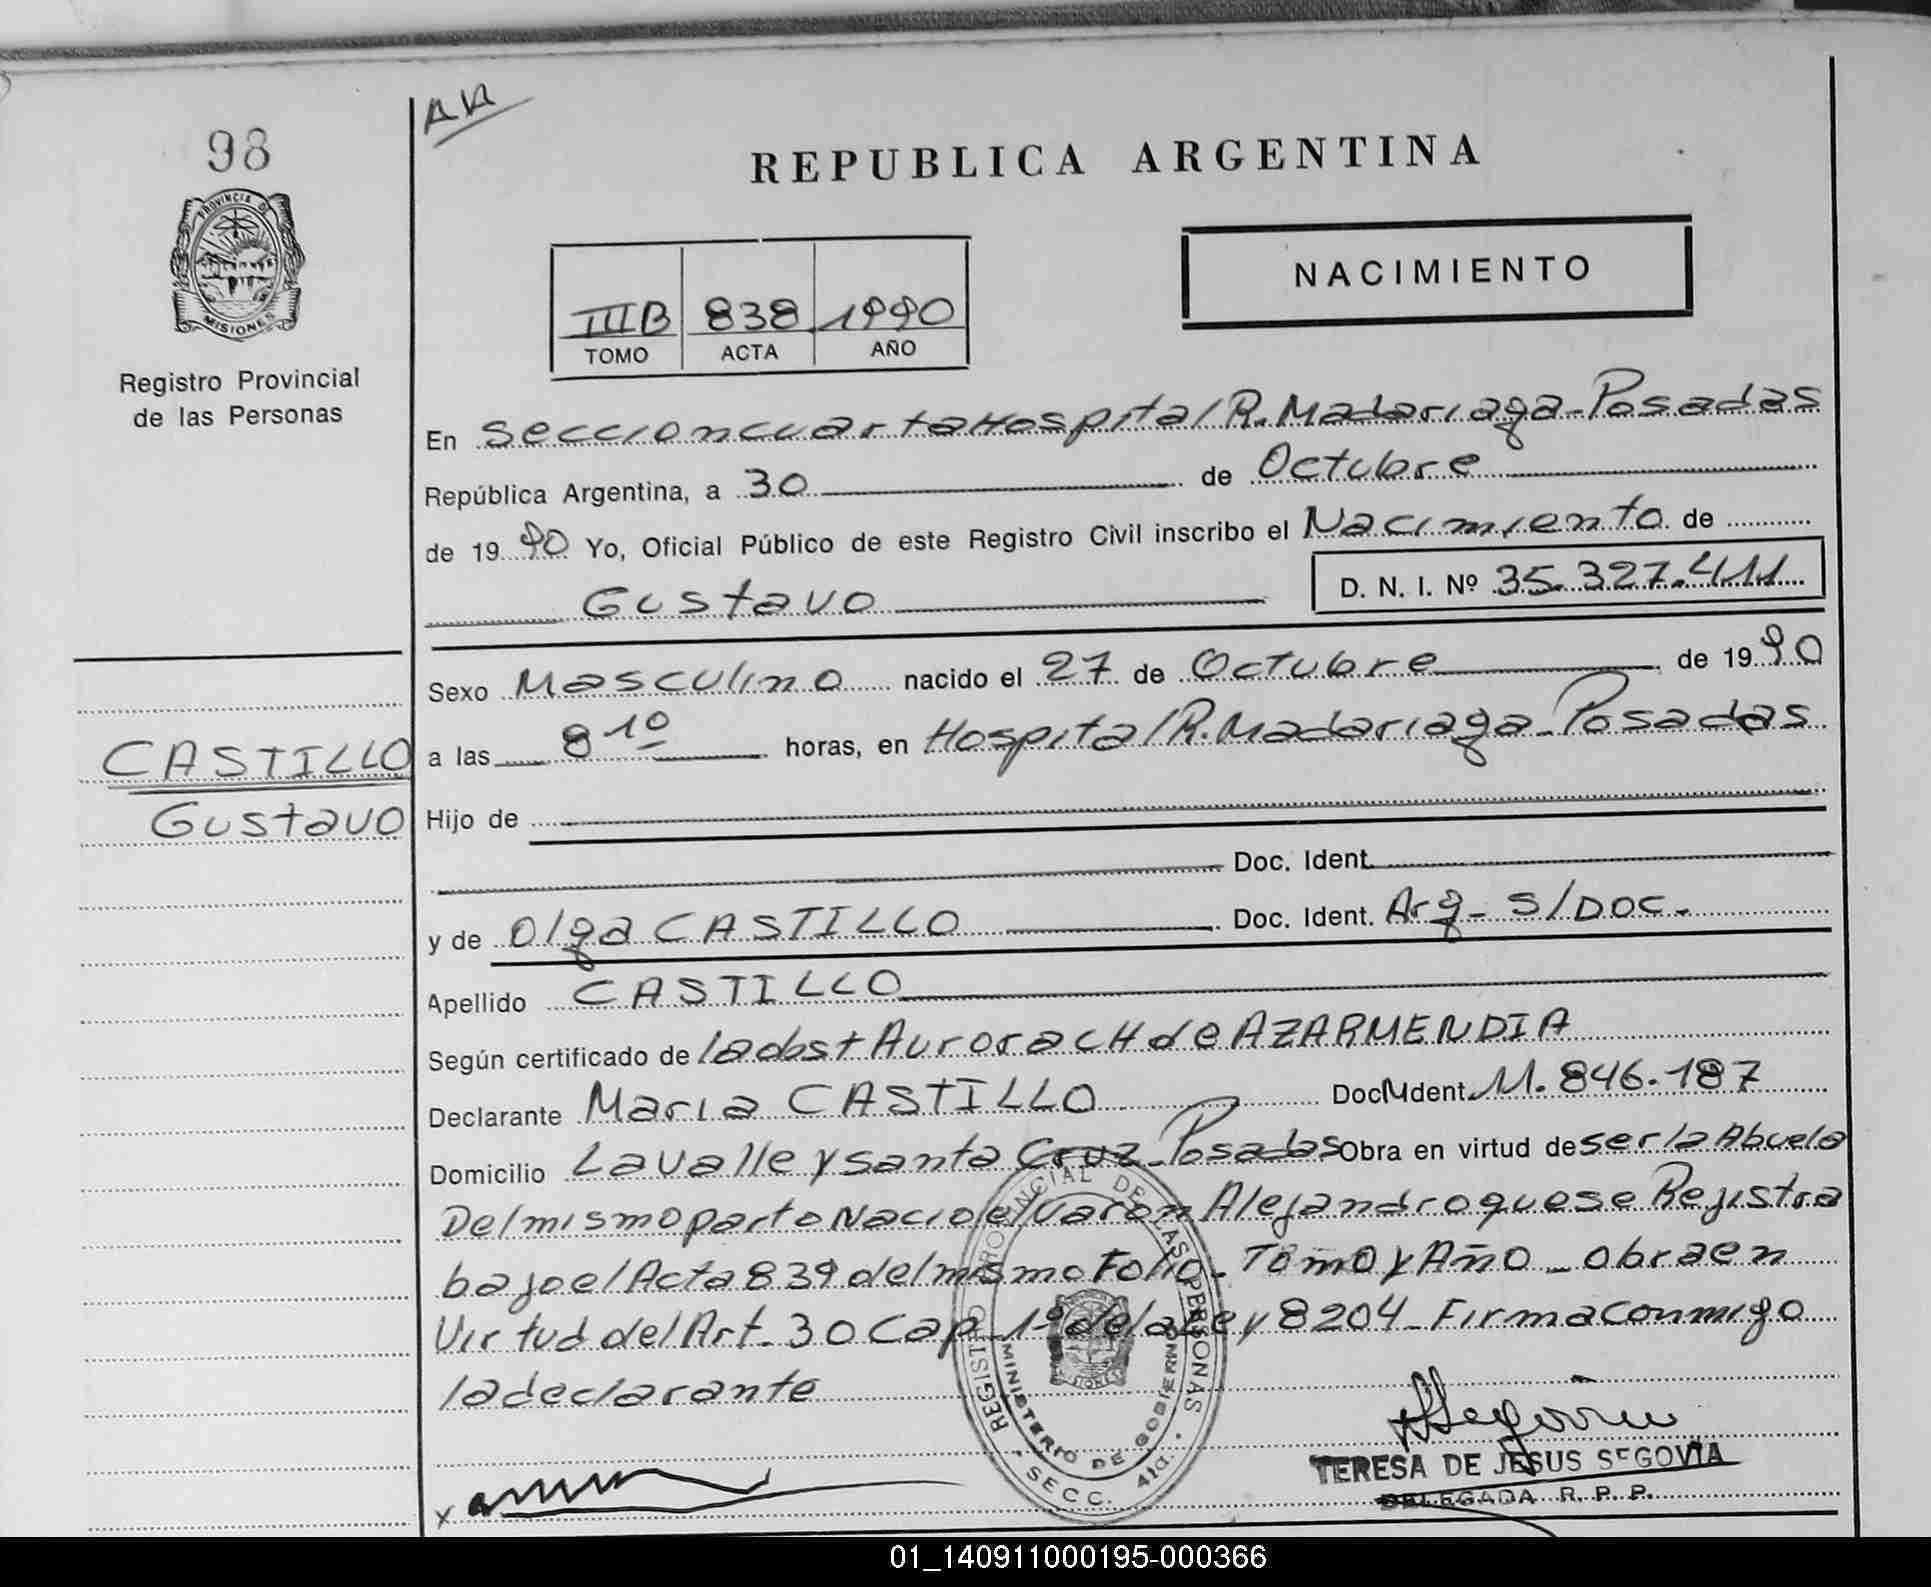 98
AR
REPUBLICA ARGENTINA
PROVINCIA DE
MISIONES
Registro Provincial
de las Personas
NACIMIENTO
IIIB 838 1990
TOMO ACTA AÑO
En Seccion cuarta Hospital R. Madariaga - Posadas
República Argentina, a 30 de Octubre
de 1990 Yo, Oficial Público de este Registro Civil inscribo el Nacimiento de
Gustavo D. N. I. Nº 35.327.411
Sexo Masculino nacido el 27 de Octubre de 1990
a las 8 10 horas, en Hospital R. Madariaga - Posadas
CASTILLO
Gustavo
Hijo de
Doc. Ident.
y de Olga CASTILLO Doc. Ident. Arg - S/DOC.
Apellido CASTILLO
Según certificado de la obst Aurora CH de AZARMENDIA
Declarante Maria CASTILLO Doc. Ident. M. 846.187
Domicilio Lavalle y santa Cruz - Posadas Obra en virtud de ser la Abuela
Del mismo parto Nacio el varon Alejandro que se Registra
bajo el Acta 839 del mismo Folio - Tomo y Año - obra en
Virtud del Art. 30 Cap 1º de la Ley 8204 - Firma conmigo
la declarante
REGISTRO PROVINCIAL DE LAS PERSONAS
MINISTERIO DE GOBIERNO
SECC. 4ta.
TERESA DE JESUS SEGOVIA
DELEGADA R. P. P.
X
01_140911000195-000366